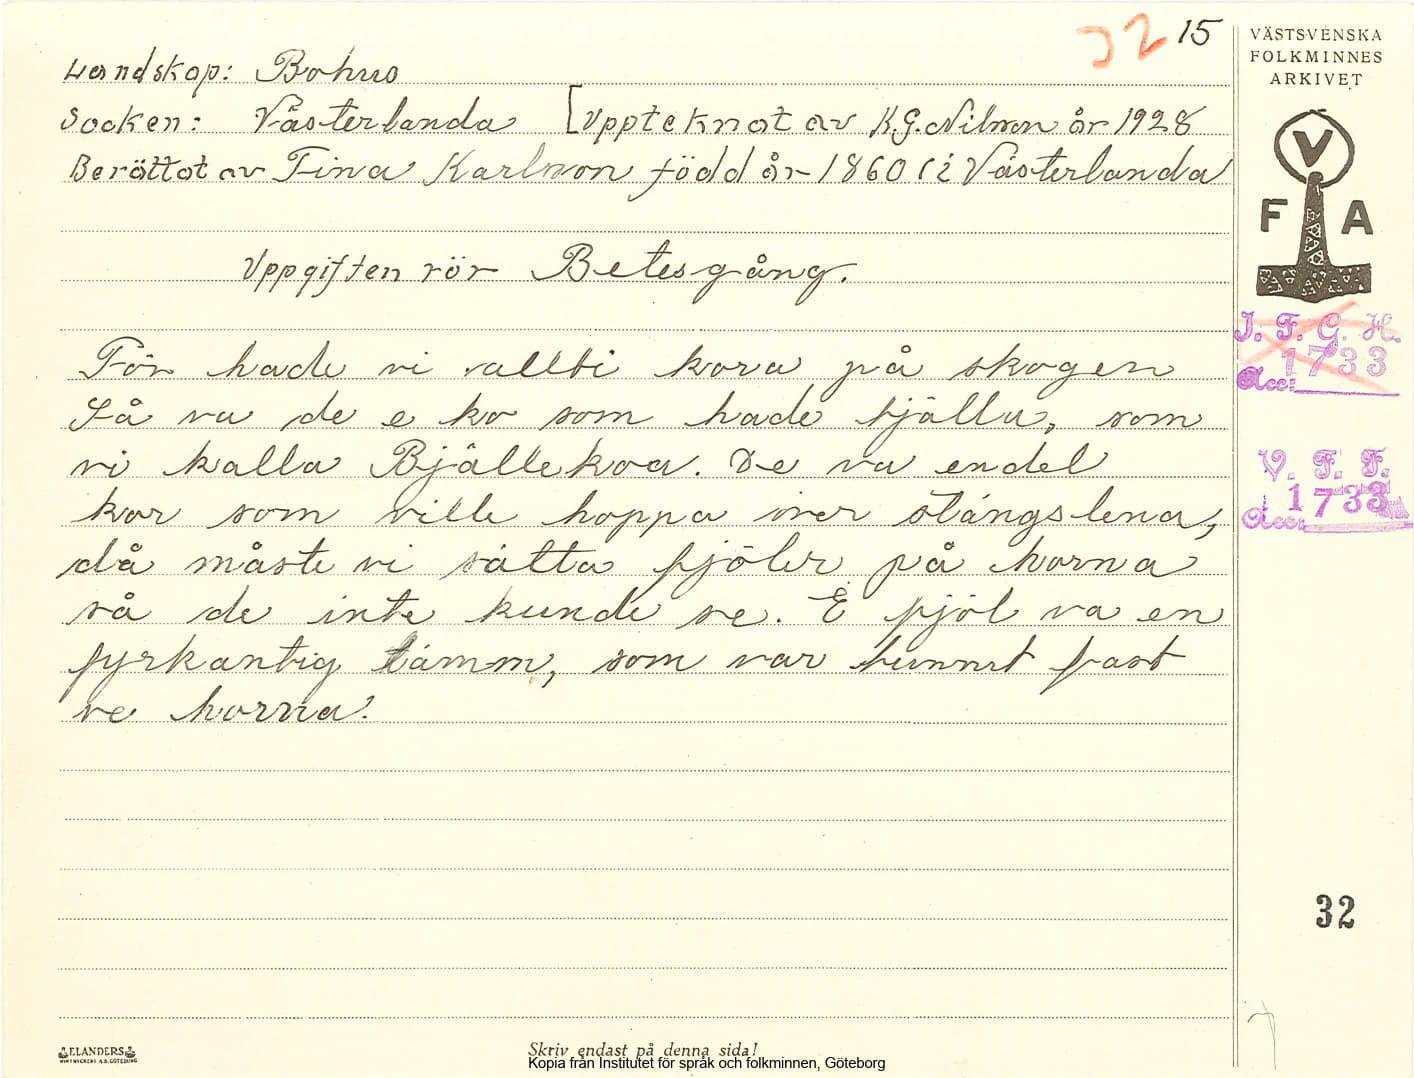 32 15
Landskap: Bohus
Socken: Västerlanda [Uppteknat av K.G. Nilsson år 1928
Berättat av Tina Karlsson född år 1860 (i Västerlanda
Uppgiften rör Betesgång.
För hade vi allti kora på skogen
Så va de e ko som hade bjälla, som
vi kalla Bjällekoa. De va endel
kor som ville hoppa över stängslena,
då måste vi sätta fjöler på horna
så de inte kunde se. E fjöl va en
fyrkantig lämm, som var bunnet fast
ve horna.
VÄSTSVENSKA
FOLKMINNES
ARKIVET
V
F A
I. F. G. H.
1733
Acc:
V. F. F.
1733
Acc:
32
ELANDERS
Skriv endast på denna sida!
Kopia från Institutet för språk och folkminnen, Göteborg